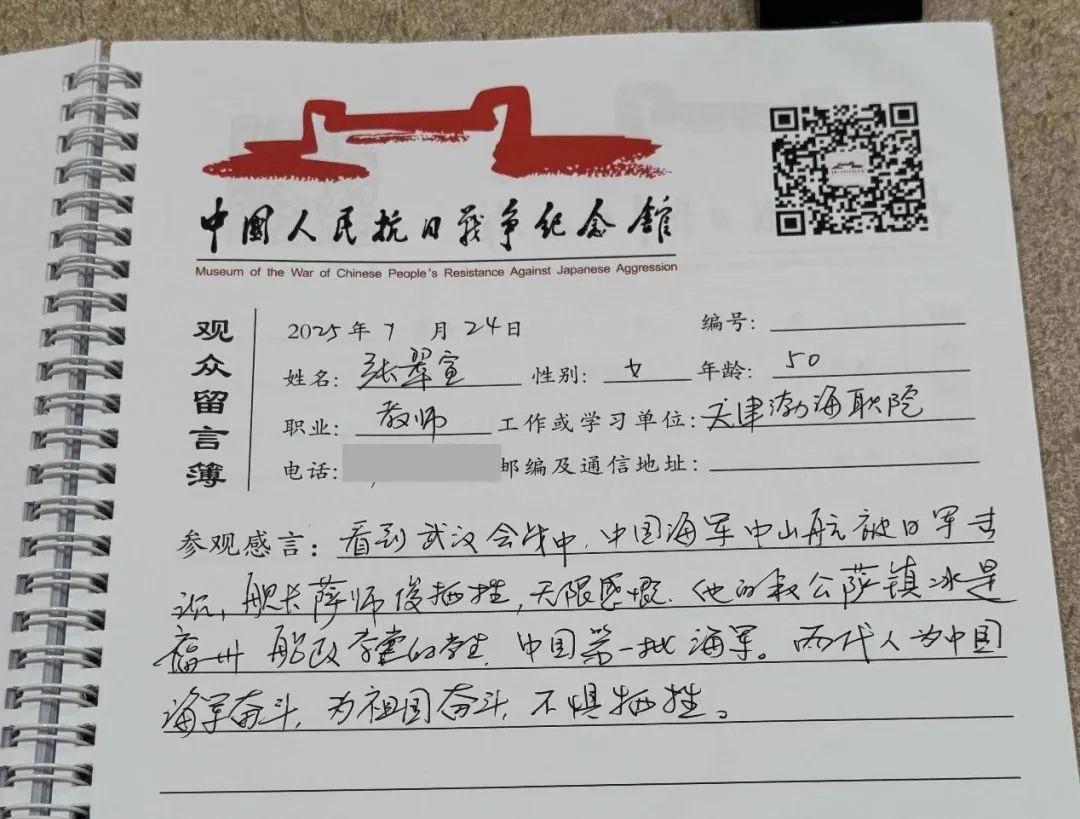 中國人民抗日戰争纪念館
Museum of the War of Chinese People's Resistance Against Japanese Aggression
观众留言簿
2025年7月24日
编号:
姓名: 张翠宣 性别: 女 年龄: 50
职业: 教师 工作或学习单位: 天津渤海职院
电话: 邮编及通信地址:
参观感言: 看到武汉会战中,中国海军中山舰被日军击
沉,舰长萨师俊牺牲,无限感慨.他的叔公萨镇冰是
福州船政学堂的学生,中国第一批海军。两代人为中国
海军奋斗,为祖国奋斗,不惧牺牲。